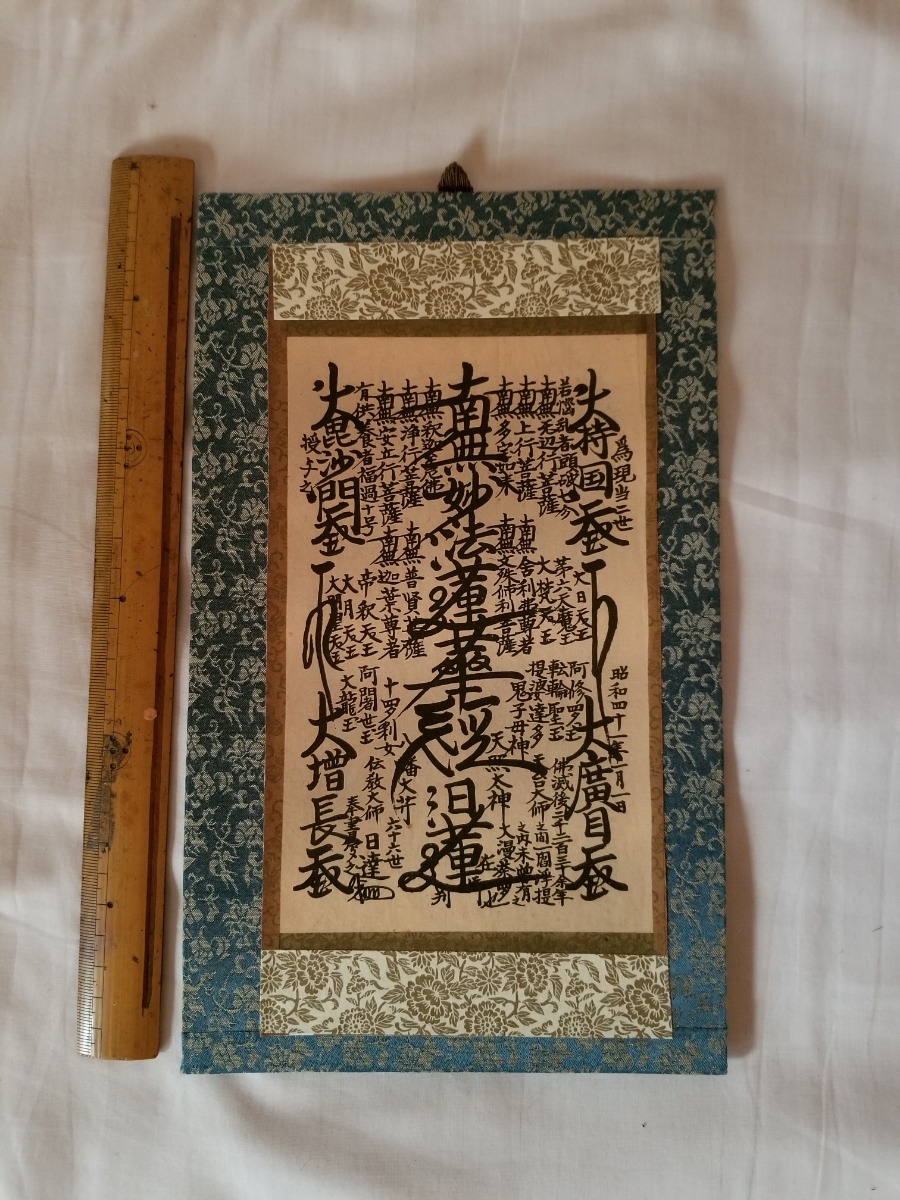 爲現当二世
昭和四十一年一月一日
大持国天王
大廣目天王
若悩乱者頭破七分
大日天王
第六天魔王
大梵天王
阿修羅王
転輪聖王
提婆達多
鬼子母神
天照太神
天台大師
佛滅後二千二百三十余年
之間一閻浮提
之内未曽有之
大漫荼羅也
南無无辺行菩薩
南無上行菩薩
南無多宝如来
南無舎利弗尊者
南無文殊師利菩薩
南無妙法蓮華経日蓮
在御判
南無釈迦牟尼佛
南無浄行菩薩
南無安立行菩薩
有供養者福過十号
南無普賢菩薩
南無迦葉尊者
帝釈天王
大月天王
大明星天王
十四羅刹女
阿闍世王
大龍王
八幡大菩薩
伝教大師
六十六世
日達
奉書写之
大毘沙門天王
授与之
大増長天王